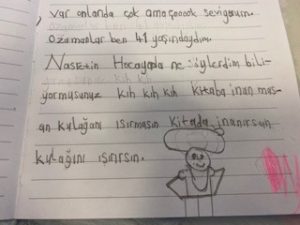 var onlarıda çok amaçooook seviyorum.
Ozamanlar ben 41 yaşındaydım.
Nasretin Hocayanla ne söylerdim bili-
yormusunuz kıh kıh kıh kitaba inan mas-
an kulağanı ısırmasın kitada inanırsan
kulağını ışırırsın.